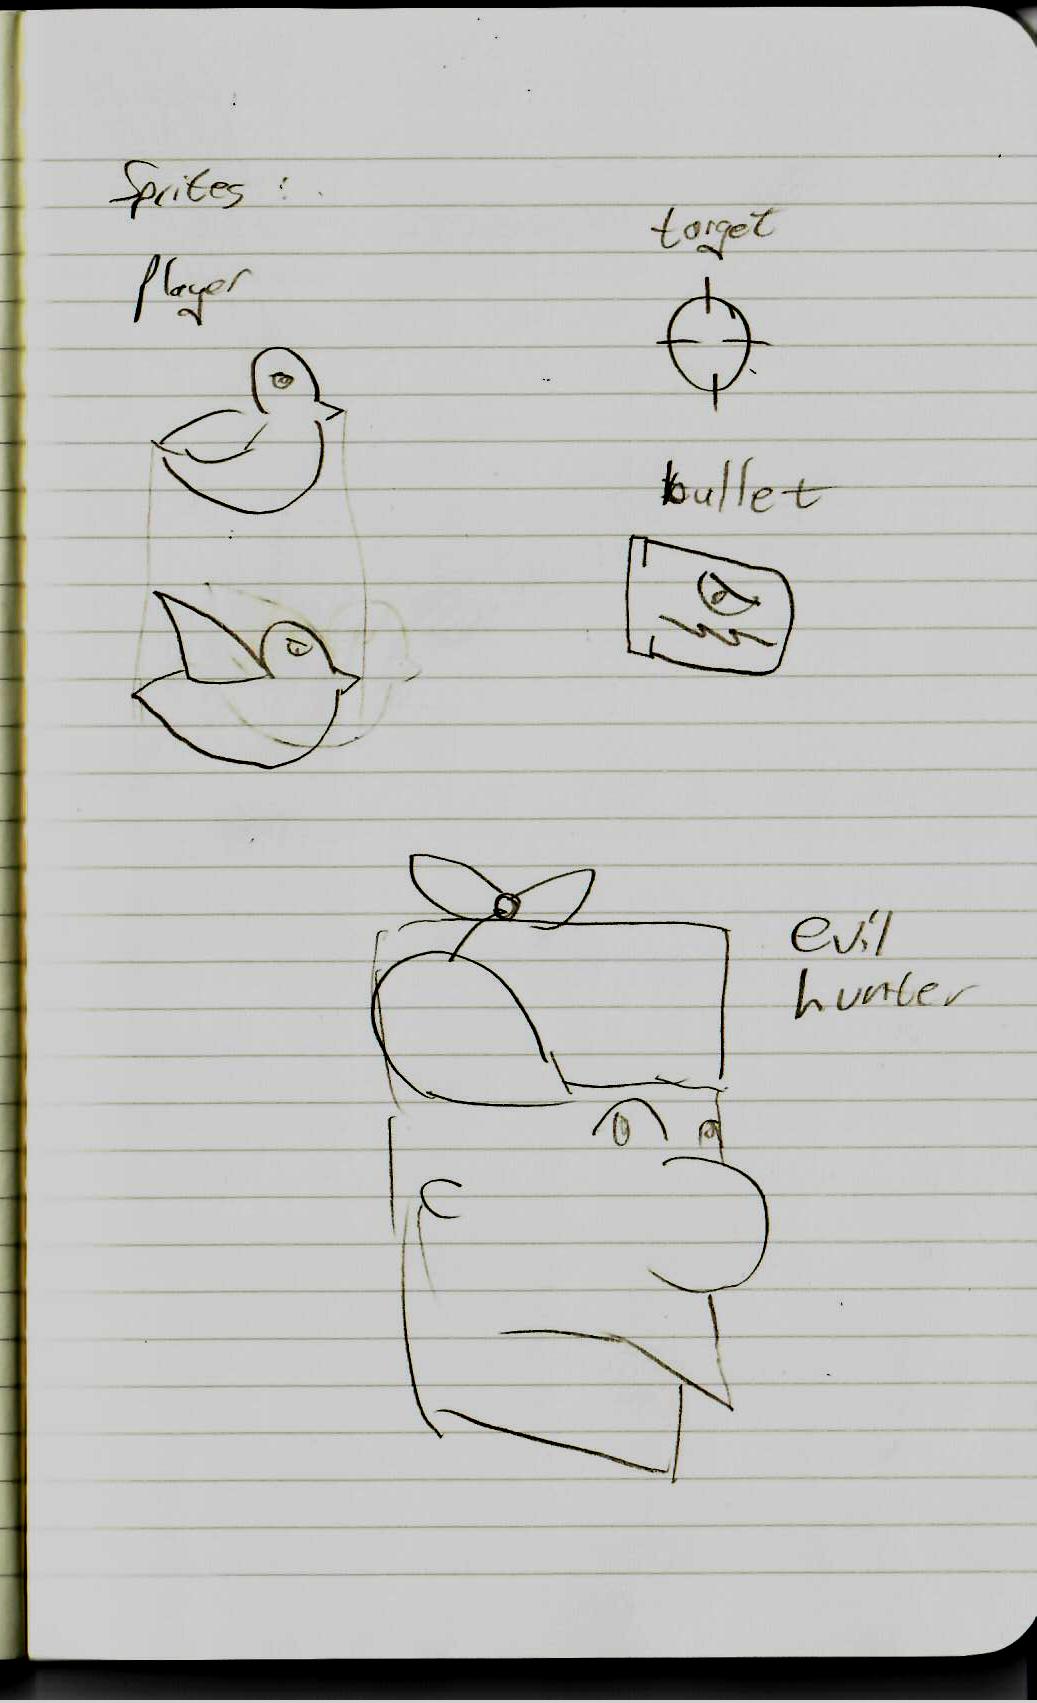 Sprites :
Player
target
bullet
evil
hunter